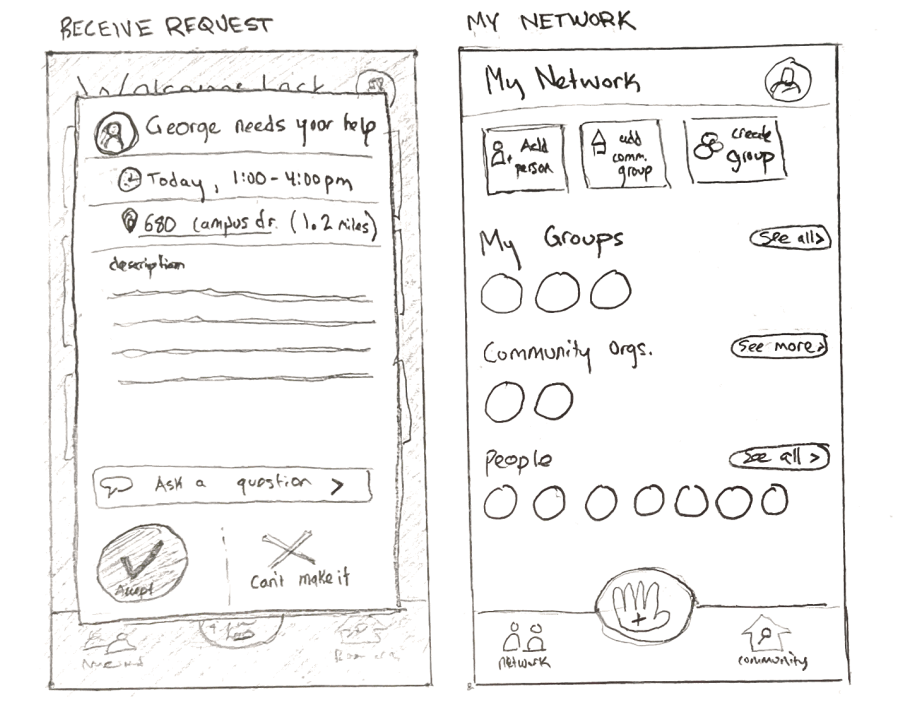 RECEIVE REQUEST
MY NETWORK
Welcome back
George needs your help
Today, 1:00-4:00pm
680 campus dr. (1.2 miles)
description
Ask a question >
Accept
Can't make it
My Network
Add person
add comm. group
create group
My Groups
See all>
Community Orgs.
See more>
People
See all >
+
network
community